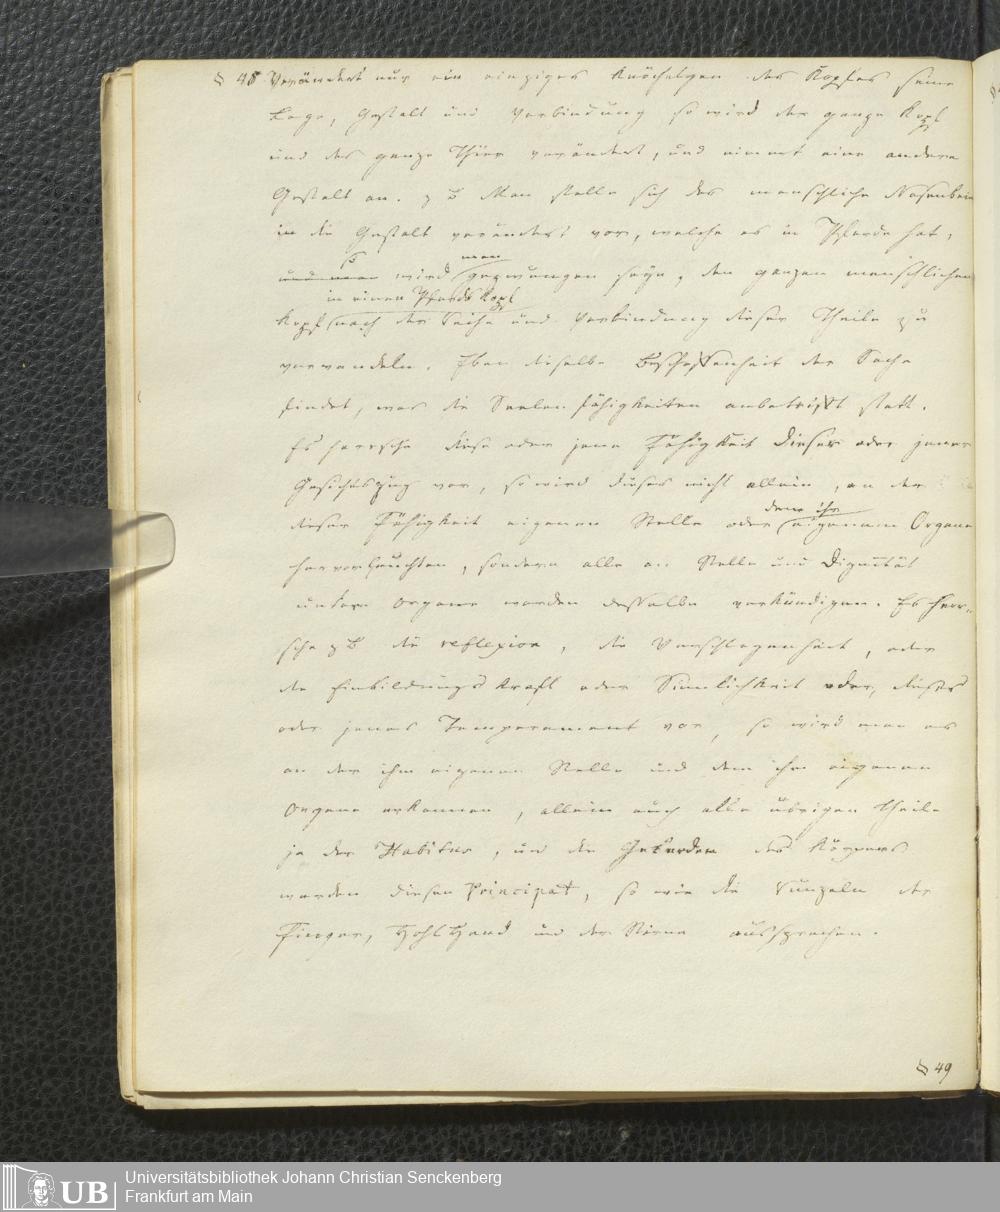 § 48 Verändert nur ein einziges Knöchelgen des Kopfes seine
Lage, Gestalt und Verbindung so wird der ganze Kopf
und das ganze Thier verändert, und nimmt eine andere
Gestalt an. z B Man stelle sich das menschliche Nasenbein
in die Gestalt verändert vor, welche es im Pferde hat,
so man
und man wird gezwungen seyn, den ganzen menschlichen
in einen Pferds Kopf
Kopf nach der Reihe und Verbindung dieser Theile zu
verwandeln. Eben dieselbe Beschaffenheit der Sache
findet, was die Seelen fähigkeiten anbetrifft statt.
Es herrsche diese oder jene Fähigkeit dieser oder jener
Gesichtszug vor, so wird dieses nicht allein, an der
dem ihr
dieser Fähigkeit eigenen Stelle oder eigenem Organe
hervorleuchten, sondern alle an Stelle und Dignität
untere Organe werden dasselbe verkündigen. Es herr-
sche z B die reflexion, die Verschlagenheit, oder
die Einbildungs kraft oder Sinnlichkeit oder, dieses
oder jenes Temperament vor, so wird man es
an der ihm eigenen Stelle und dem ihm eigenen
Organe erkennen, allein auch alle übrigen Theile
ja der Habitus, und die Geberden des Körpers
werden diesen Principat, so wie die Runzeln der
Finger, Hohl Hand und der Stirne aussprechen.
§ 49
UB Universitätsbibliothek Johann Christian Senckenberg
Frankfurt am Main